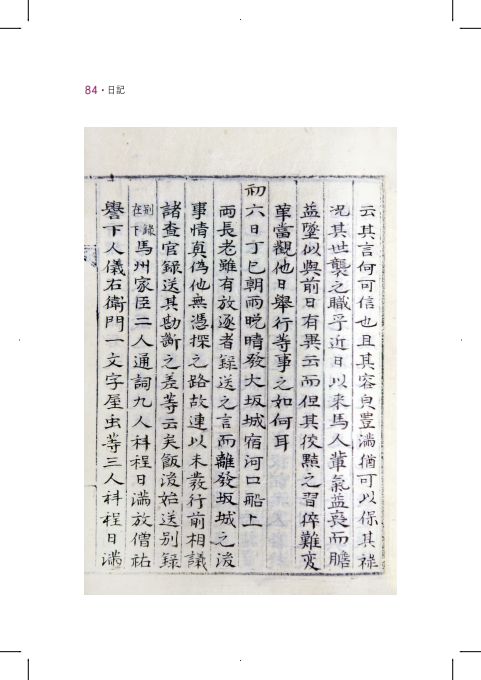 84・日記
云其言何可信也且其容皃豊滿猶可以保其祿
况其世襲之職乎近日以来馬人輩氣益喪而膽
益墜似與前日有異云而但其狡黠之習倅難変
革當觀他日舉行等事之如何耳
初六日丁巳朝雨晩晴發大坂城宿河口船上
両長老雖有放逐者録送之言而離發坂城之後
事情真偽他無憑探之路故連以未發行前相議
諸查官録送其勘斷之差等云矣飯後始送別録
別録在下馬州家臣二人通詞九人科程日滿放僧祐
譽下人儀右衛門一文字屋虫等三人科程日滿